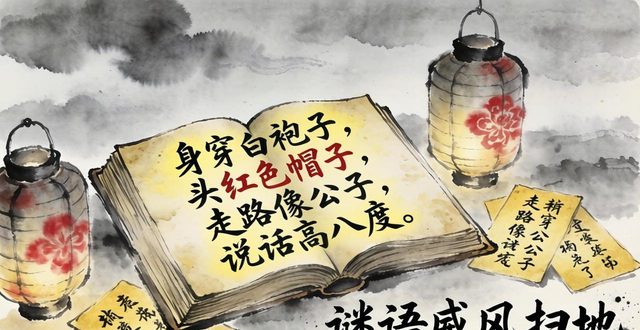 身穿白袍子，
头红色帽子，
走路像公子，
说话高八度。
稍穿公公子
走路像谜度
谜语威风扫地